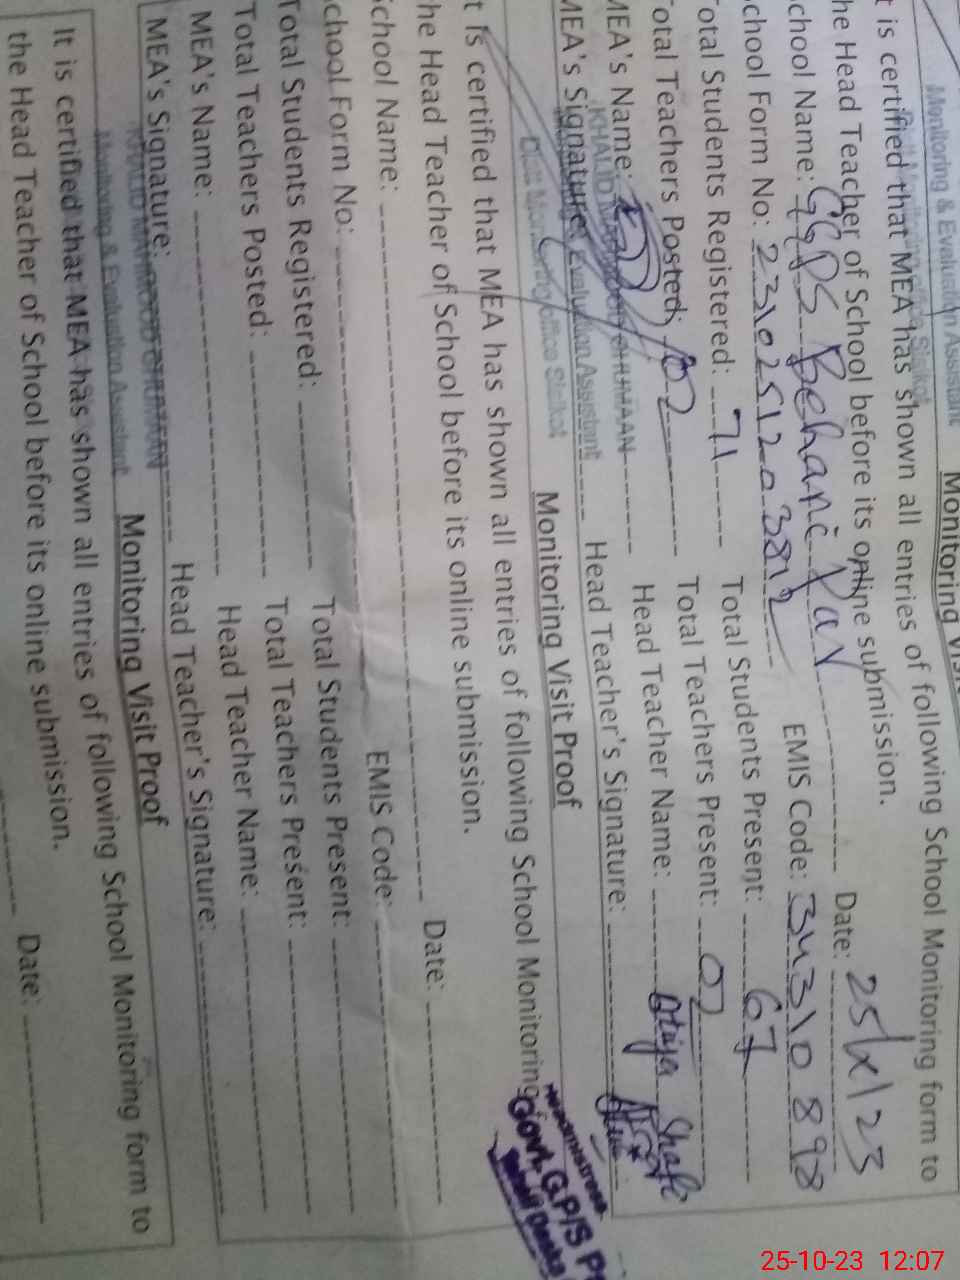 Monitoring & Evaluation Assistant
Monitoring Visit
t is certified that MEA has shown all entries of following School Monitoring form to
he Head Teacher of School before its online submission.
chool Name: GGPS Behari Date: 25/X/23
chool Form No: EMIS Code: 34310898
otal Students Registered: 71 Total Students Present: 67
otal Teachers Posted: 02 Total Teachers Present: 02
MEA's Name: Head Teacher Name: Atiya Shafi
MEA's Signature: Head Teacher's Signature:
KHALID MAHMOOD GHUMAAN
Monitoring & Evaluation Assistant
Distt Monitoring office Sialkot
Monitoring Visit Proof
t is certified that MEA has shown all entries of following School Monitoring
he Head Teacher of School before its online submission.
Govt. G.P/S
School Name: Date:
chool Form No: EMIS Code:
Total Students Registered: Total Students Present:
Total Teachers Posted: Total Teachers Present:
MEA's Name: Head Teacher Name:
MEA's Signature: Head Teacher's Signature:
KHALID MAHMOOD GHUMAAN
Monitoring & Evaluation Assistant
Monitoring Visit Proof
It is certified that MEA has shown all entries of following School Monitoring form to
the Head Teacher of School before its online submission.
Date:
25-10-23 12:07